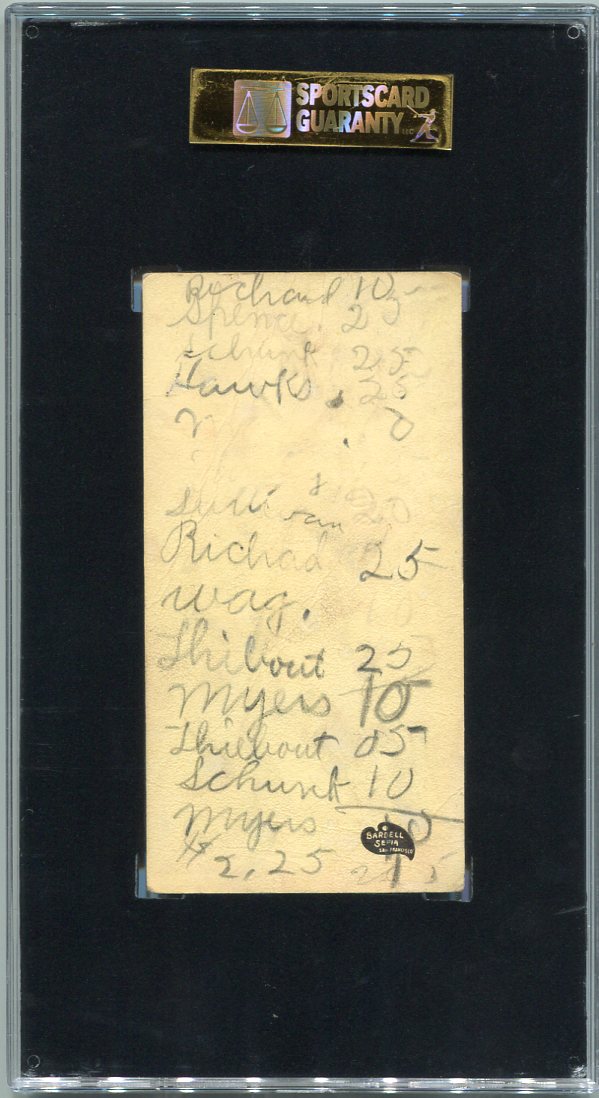 SPORTSCARD
GUARANTY LLC
Richard 10
Spence. 25
Schunk 25
Hawks. 25
Sullivan 20
Richad 25
wag.
Thibout 25
Myers 10
Thiebout 05
Schunk 10
Myers 10
BARDELL
SEPIA
SAN FRANCISCO
$ 2.25